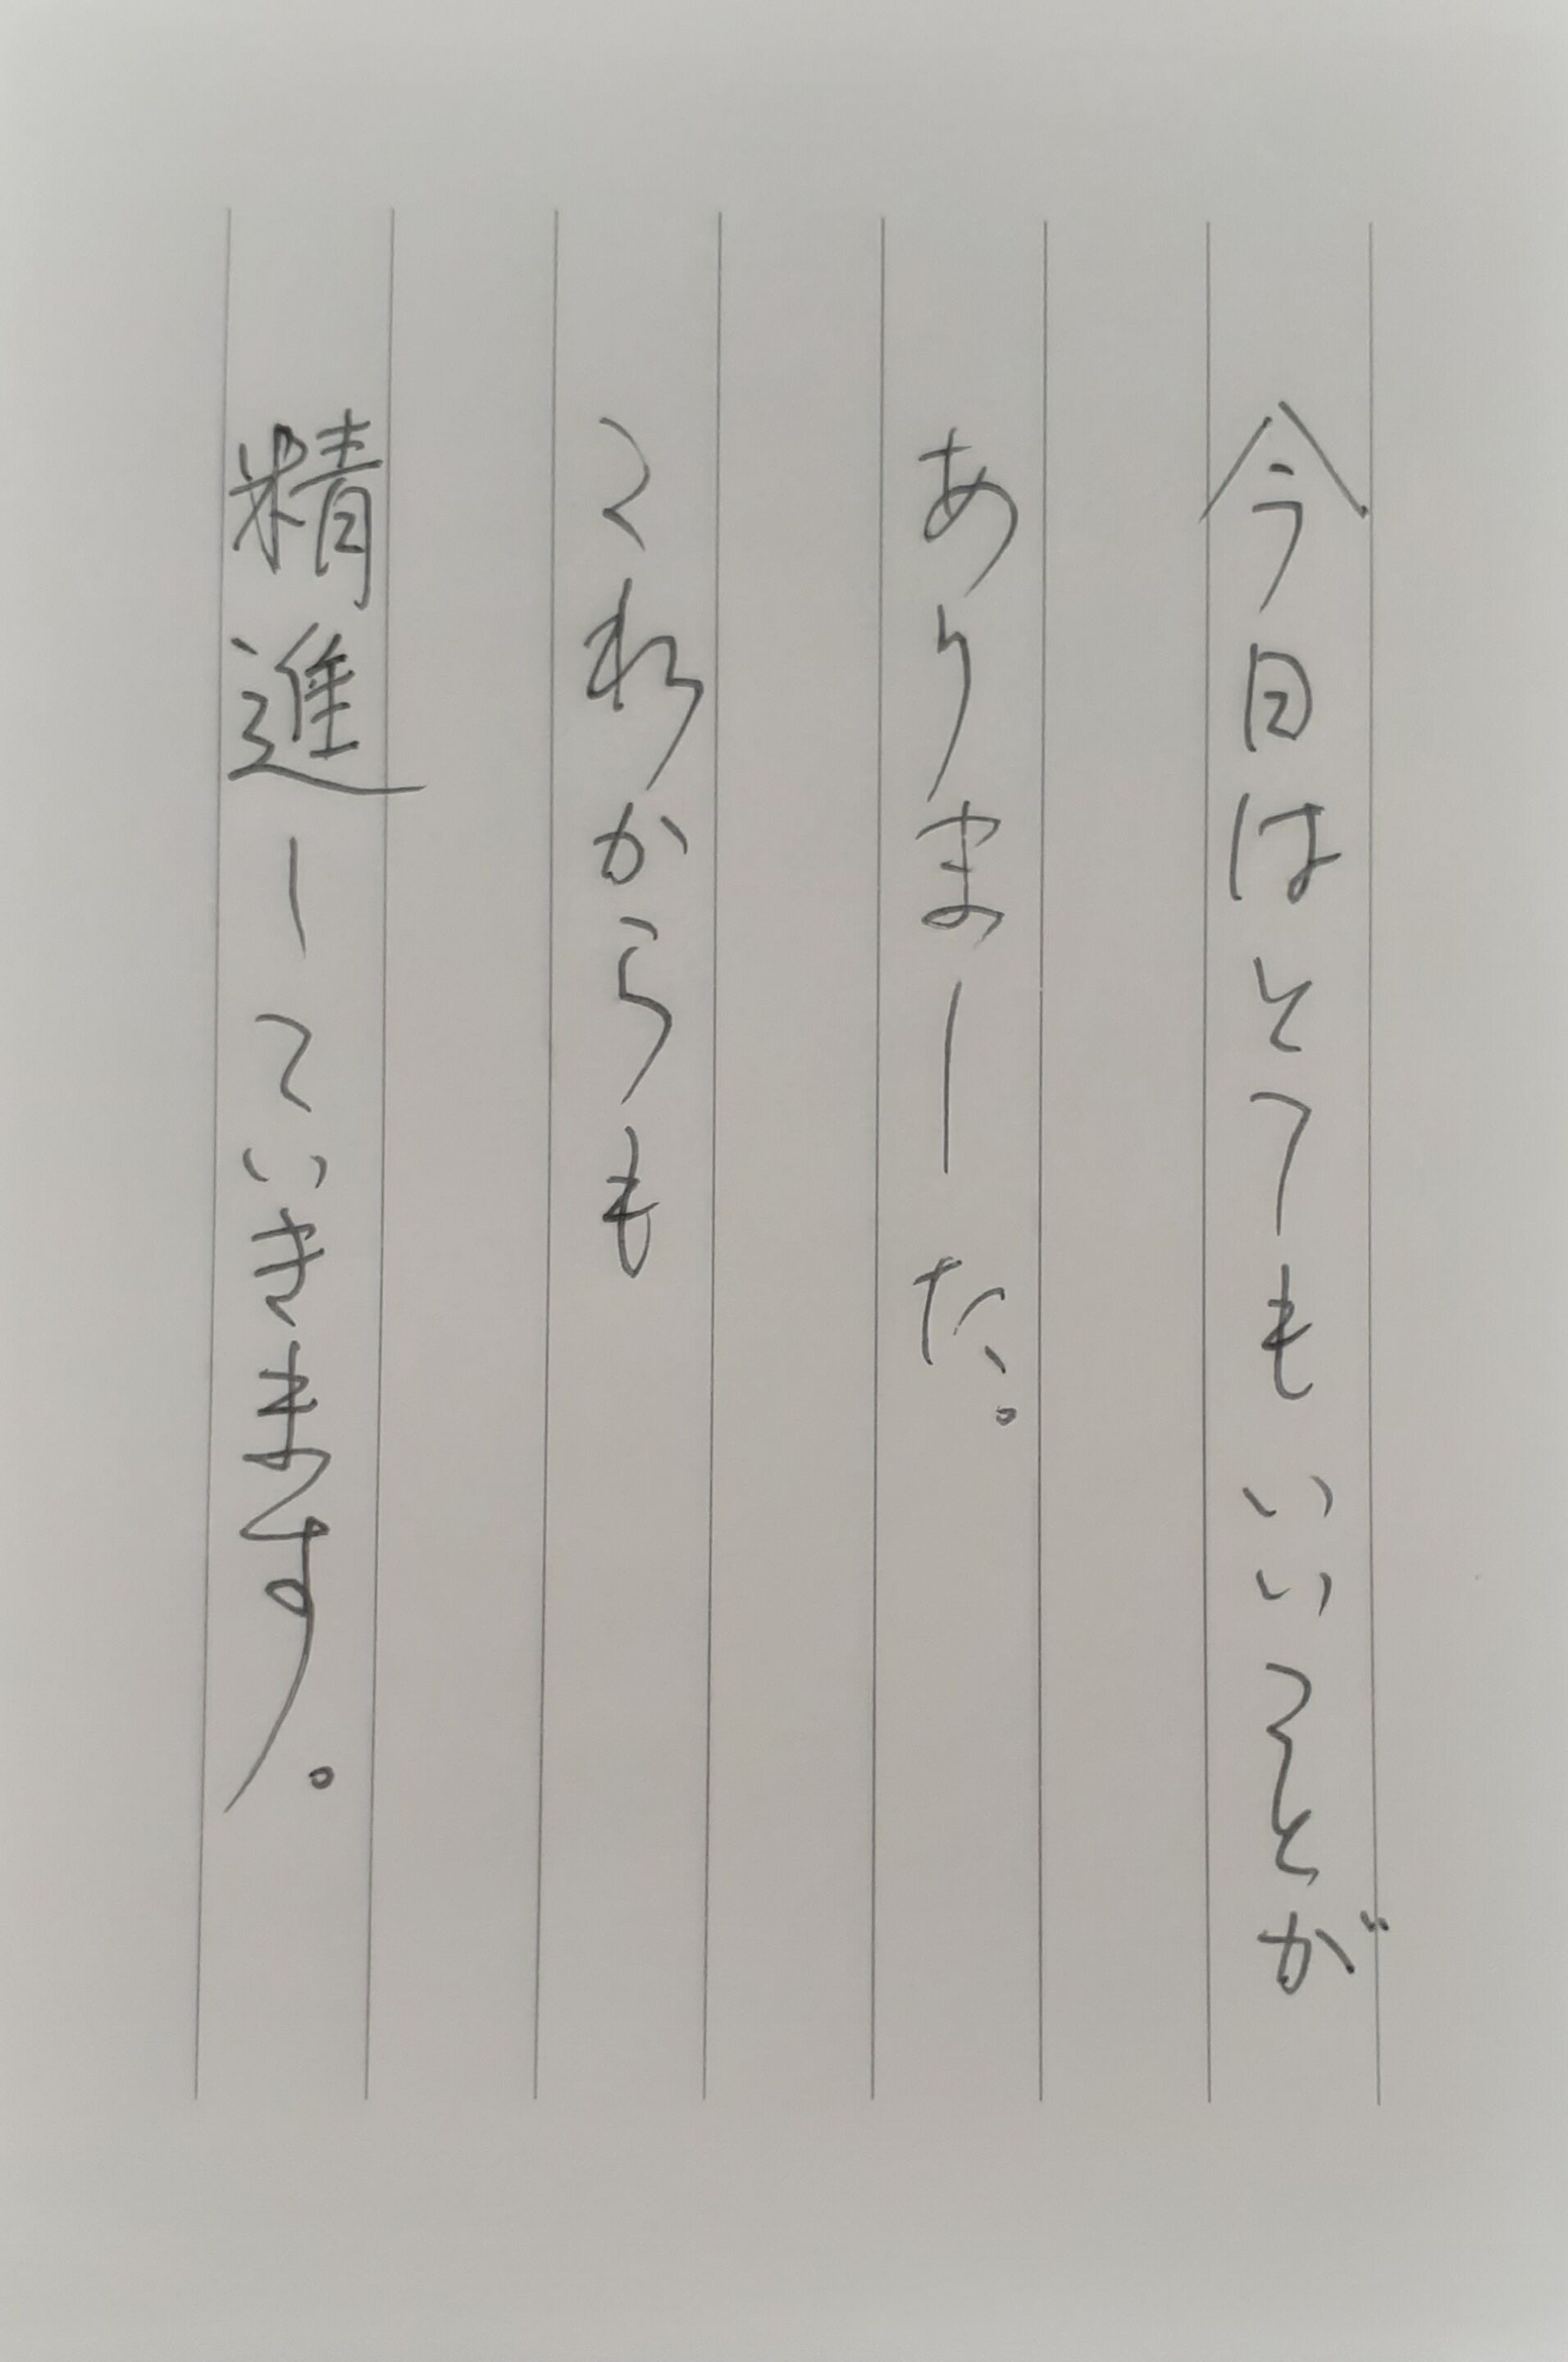 今日はとてもいいことが
ありました。
これからも
精進していきます。